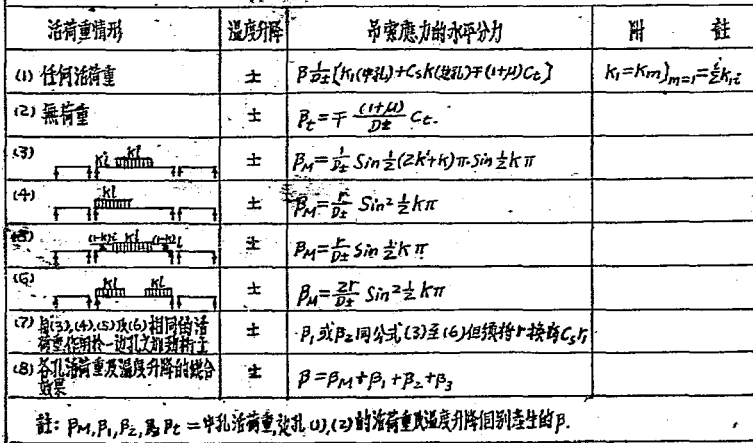 活荷重情形 溫度升降 吊索應力的水平分力 附 註
(1) 任何活荷重 ± β 1/D± [K₁(中孔)+CₛK(边孔)∓(1+μ)Cₜ] K₁=Kₘ}ₘ₌₁=
(2) 無荷重 ± βₜ=∓ (1+μ)/D± Cₜ.
(3) Kl ± βM= Sin ½(2K'+K)π·Sin ½Kπ
(4) Kl ± βM= r/D± Sin² ½Kπ
Kl ± βM= r/D± Sin ½Kπ
(6) Kl Kl ± βM= 2r/D± Sin² ½Kπ
(7) 與(3),(4),(5)及(6)相同的活荷重作用於一边孔 ± β₁或β₂同公式(3)至(6)但須将r換為Cₛr₁
(8) 各孔活荷重及溫度升降的綜合效果 ± β=βM+β₁+β₂+β₃
註: βM,β₁,β₂,及βₜ=中孔活荷重,边孔(1),(2)的活荷重及溫度升降個别產生的β.